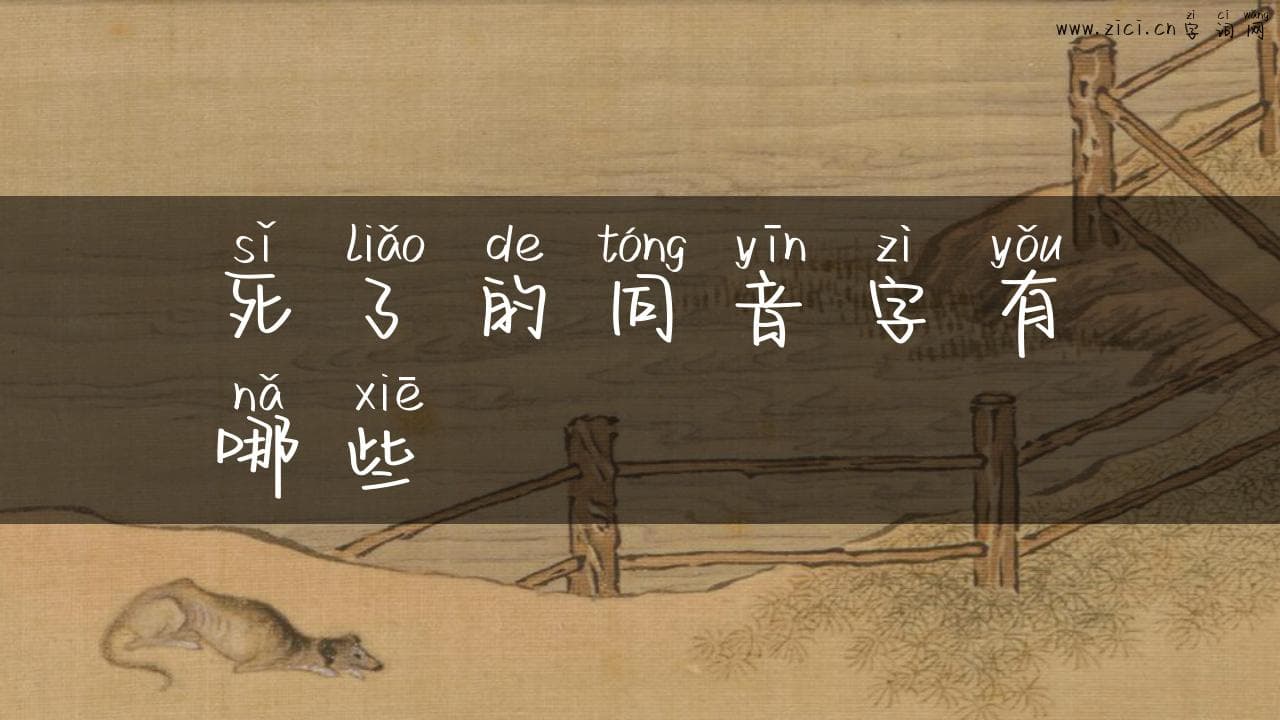 zì cí wǎng
www.zici.cn字词网
sǐ liǎo de tóng yīn zì yǒu
死了的同音字有
nǎ xiē
哪些